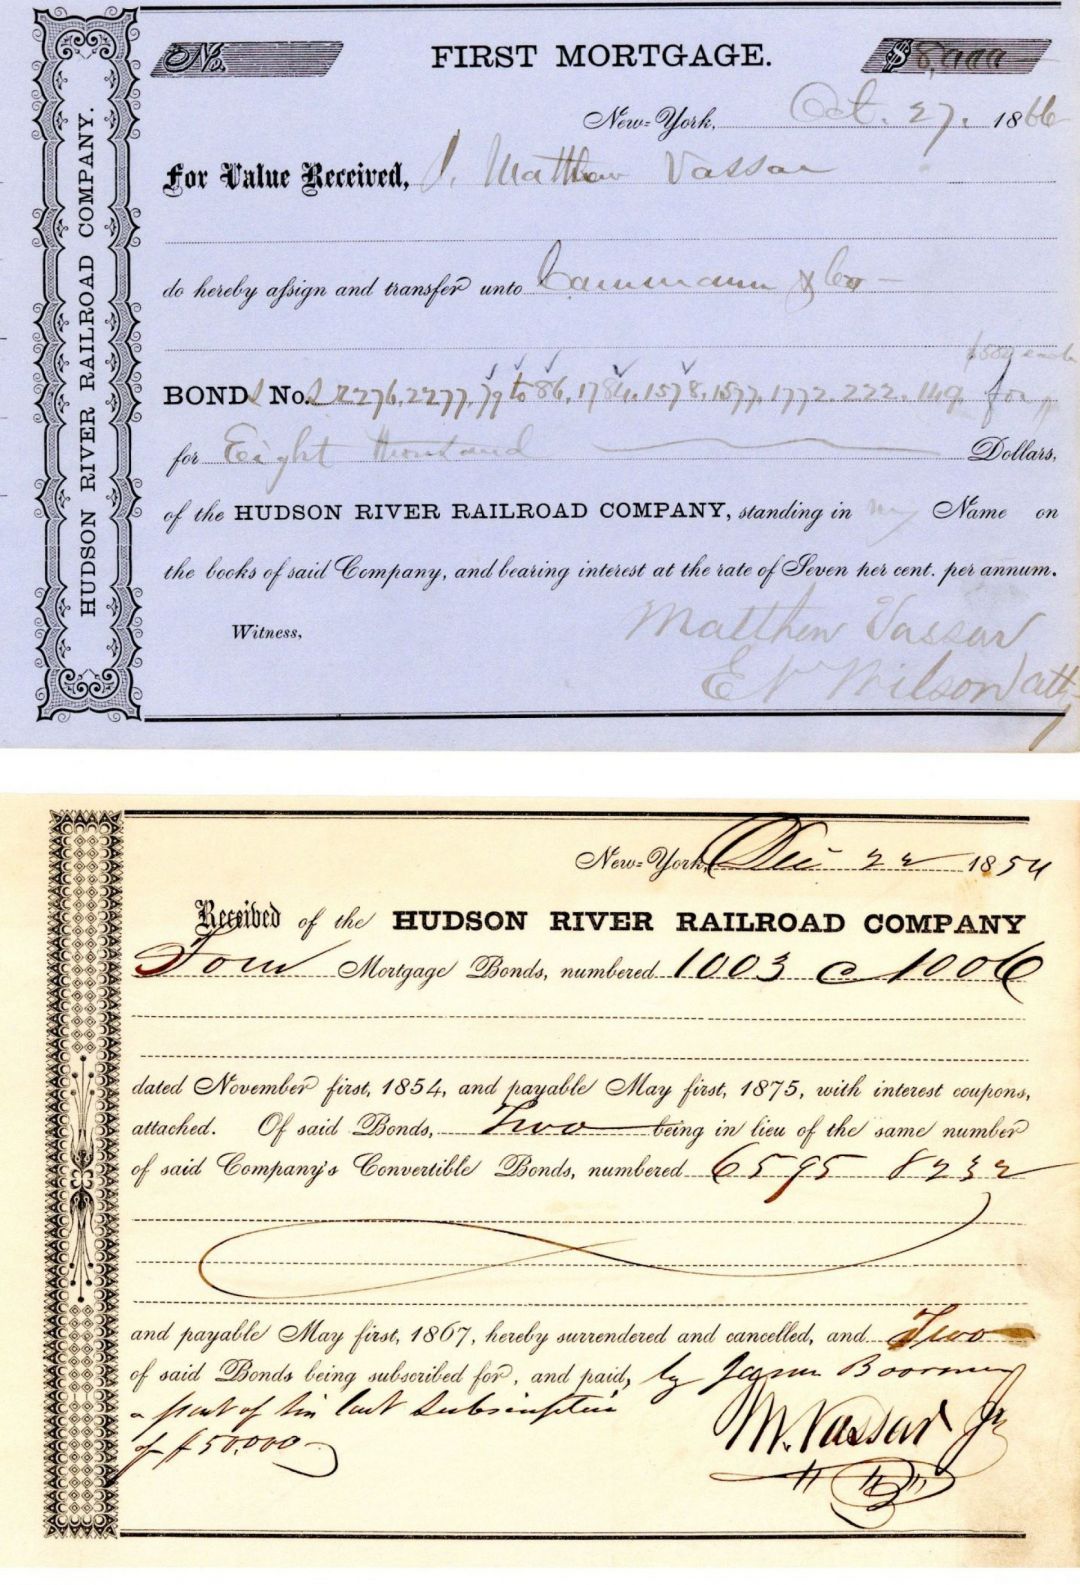 HUDSON RIVER RAILROAD COMPANY.
No.
FIRST MORTGAGE.
$8,000
New-York, Oct. 27. 1866
For Value Received, I. Matthew Vassar
do hereby assign and transfer unto Cammann & Co
$500 each
BONDS No.s 2276, 2277, 79 to 86, 1784, 1578, 1577, 1772. 222. 149 for
for Eight thousand Dollars,
of the HUDSON RIVER RAILROAD COMPANY, standing in my Name on
the books of said Company, and bearing interest at the rate of Seven per cent. per annum.
Witness,
Matthew Vassar
E V Wilson atty
New-York, Dec 22 1854
Received of the HUDSON RIVER RAILROAD COMPANY
Four Mortgage Bonds, numbered 1003 @ 1006
dated November first, 1854, and payable May first, 1875, with interest coupons,
attached. Of said Bonds, Two being in lieu of the same number
of said Company's Convertible Bonds, numbered 6595 8232
and payable May first, 1867, hereby surrendered and cancelled, and Two
of said Bonds being subscribed for, and paid, by James Boorman
a part of his last Subscription
of $50.000
M. Vassar Jr